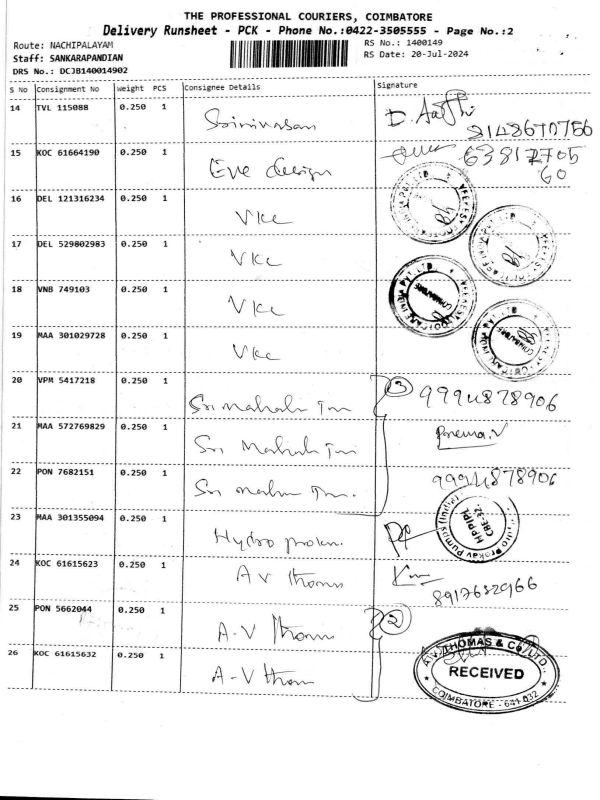 THE PROFESSIONAL COURIERS, COIMBATORE
Delivery Runsheet - PCK - Phone No.:0422-3505555 - Page No.:2
Route: NACHIPALAYAM RS No.: 1400149
Staff: SANKARAPANDIAN RS Date: 20-Jul-2024
DRS No.: DCJB140014902
S No Consignment No Weight PCS Consignee Details Signature
14 TVL 115088 0.250 1 Srinivasan
15 KOC 61664190 0.250 1 Eve design 63817705
60
16 DEL 121316234 0.250 1 VKC
17 DEL 529802983 0.250 1 VKC
18 VNB 749103 0.250 1 VKC
19 MAA 301029728 0.250 1 VKC
20 VPM 5417218 0.250 1 Sri 3 9994878906
21 MAA 572769829 0.250 1 Sri Prema.V
22 PON 7682151 0.250 1 Sri 9994878906
23 MAA 301355094 0.250 1 Hydro HPPIPL
CBE-32.
24 KOC 61615623 0.250 1 A V Thomas 8917682966
25 PON 5662044 0.250 1 A-V Thomas 2
26 KOC 61615632 0.250 1 A-V Thomas
A.V. THOMAS & Co. LTD.
RECEIVED
COIMBATORE - 641 032